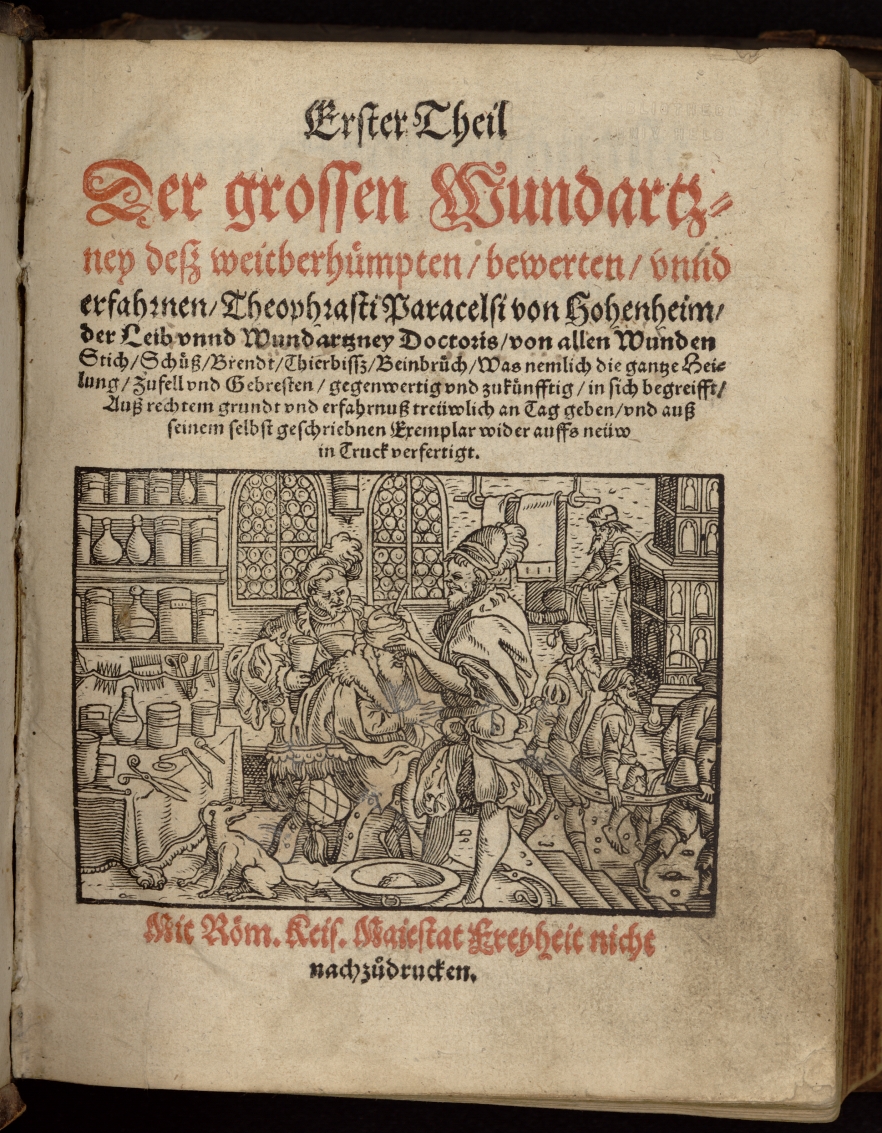 Erster Theil
Der grossen Wundartz⸗
ney desz weitberhümpten/ bewerten/ vnnd
erfahrnen/ Theophrasti Paracelsi von Hohenheim/
der Leib vnnd Wundartzney Doctoris/ von allen Wunden
Stich/ Schüß/ Brendt/ Thierbissz/ Beinbrüch/ Was nemlich die gantze Hei⸗
lung/ Zufell vnd Gebresten/ gegenwertig vnd zukünfftig/ in sich begreifft/
Auß rechtem grundt vnd erfahrnuß treüwlich an Tag geben/ vnd auß
seinem selbst geschriebnen Exemplar wider auffs neüw
in Truck verfertigt.
Mit Röm. Keis. Maiestat Freyheit nicht
nachzůdrucken.